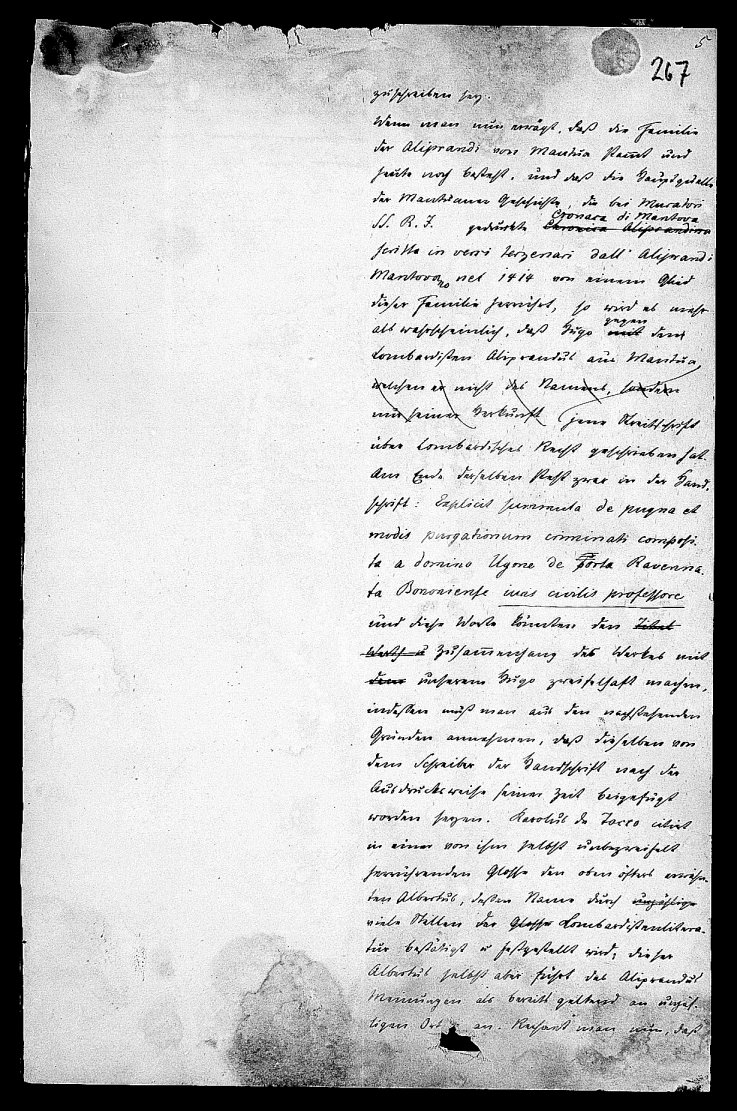 5
267
zuschreiben sey.
Wenn man nun erwägt, daß die Familie
der Aliprandi von Mantua stamt und
heute noch besteht, und daß die Hauptquelle
der Mantuaner Geschichte, die bei Muratori
SS. R. I. gedruckte Chronica Aliprandina
Cronaca di Mantova
scritta in versi terzenari dall' Aliprandi
Mantovano nel 1414 von einem Glied
dieser Familie herrührt, so wird es mehr
als wahrscheinlich, daß Hugo mit dem
gegen
Lombardisten Aliprandus aus Mantua,
welchen er nicht des Namens, sondern
nur seiner Herkunft jene Streitschrift
über Lombardisches Recht geschrieben hat.
Am Ende derselben steht zwar in der Hand-
schrift: Explicit summula de pugna et
modis purgationum criminati composi-
ta a domino Ugone de porta Ravenna-
ta Bononiense iuris civilis professore
und diese Worte könnten den Titel
Werth u Zusammenhang des Werkes mit
dem unserem Hugo zweifelhaft machen,
indessen muß man aus den nachstehenden
Gründen annehmen, daß dieselben von
dem Schreiber der Handschrift nach der
Ausdrucksweise seiner Zeit beigefügt
worden seyen. Karolus de Tocco citirt
in einer von ihm selbst unbezweifelt
herrührenden Glosse den oben öfters erwähn-
ten Albertus, dessen Name durch unzählige
viele Stellen der Glosse Lombardistenlitera-
tur bestätigt u festgestellt wird; dieser
Albertus selbst aber führt des Aliprandus
Meinungen als bereits geltend an unzäh-
ligen Ort an. Rechnet man nun, daß